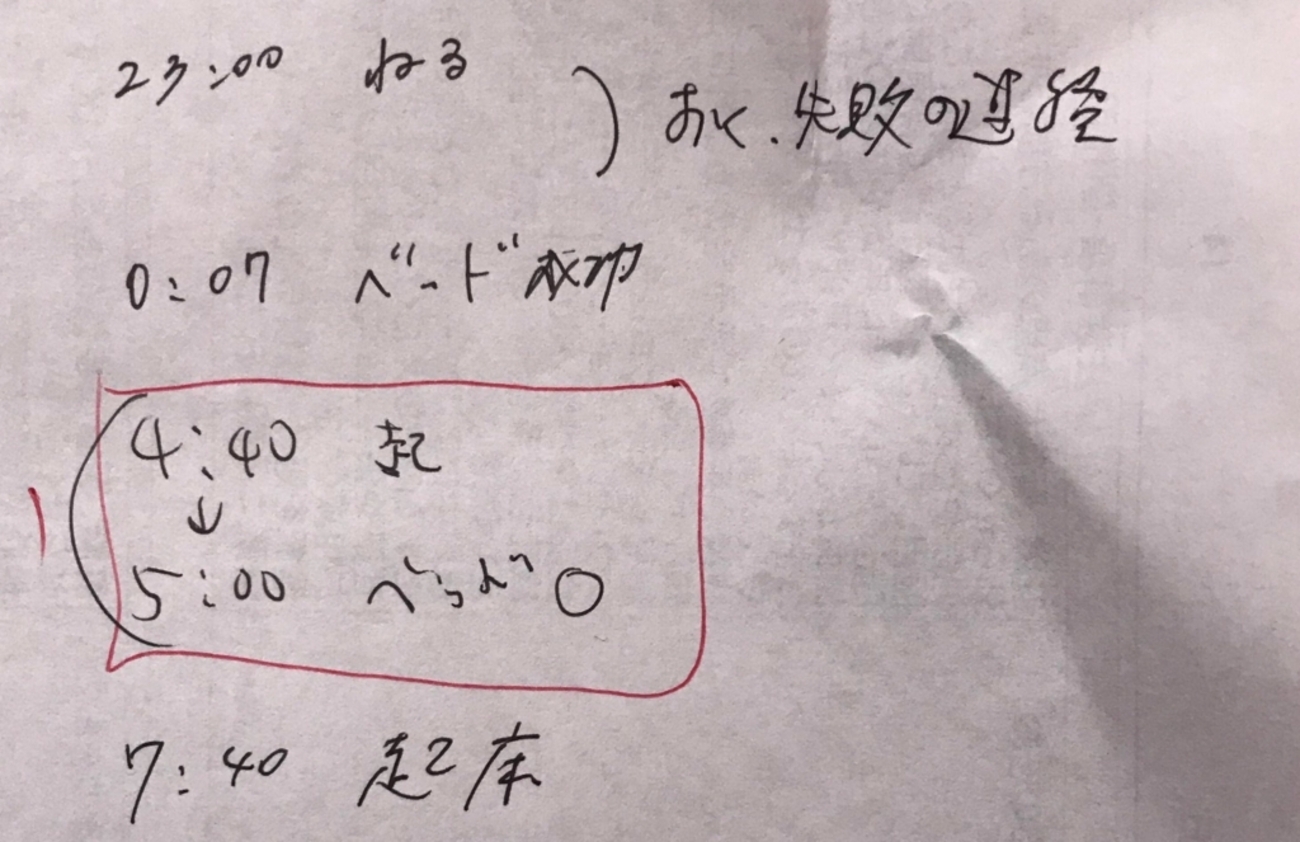 23:00 ねる
おく、失敗の過程
0:07 ベード成功
4:40 起
↓
5:00 べッド○
7:40 起床